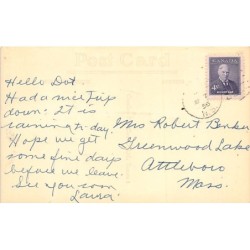 Post Card
CANADA
4
Hello Dot
Had a nice trip
down. It is
raining to-day.
Hope we get
some fine days
before we leave.
See you soon
Laura.
Mrs Robert Barker
Greenwood Lake
Attleboro
Mass.